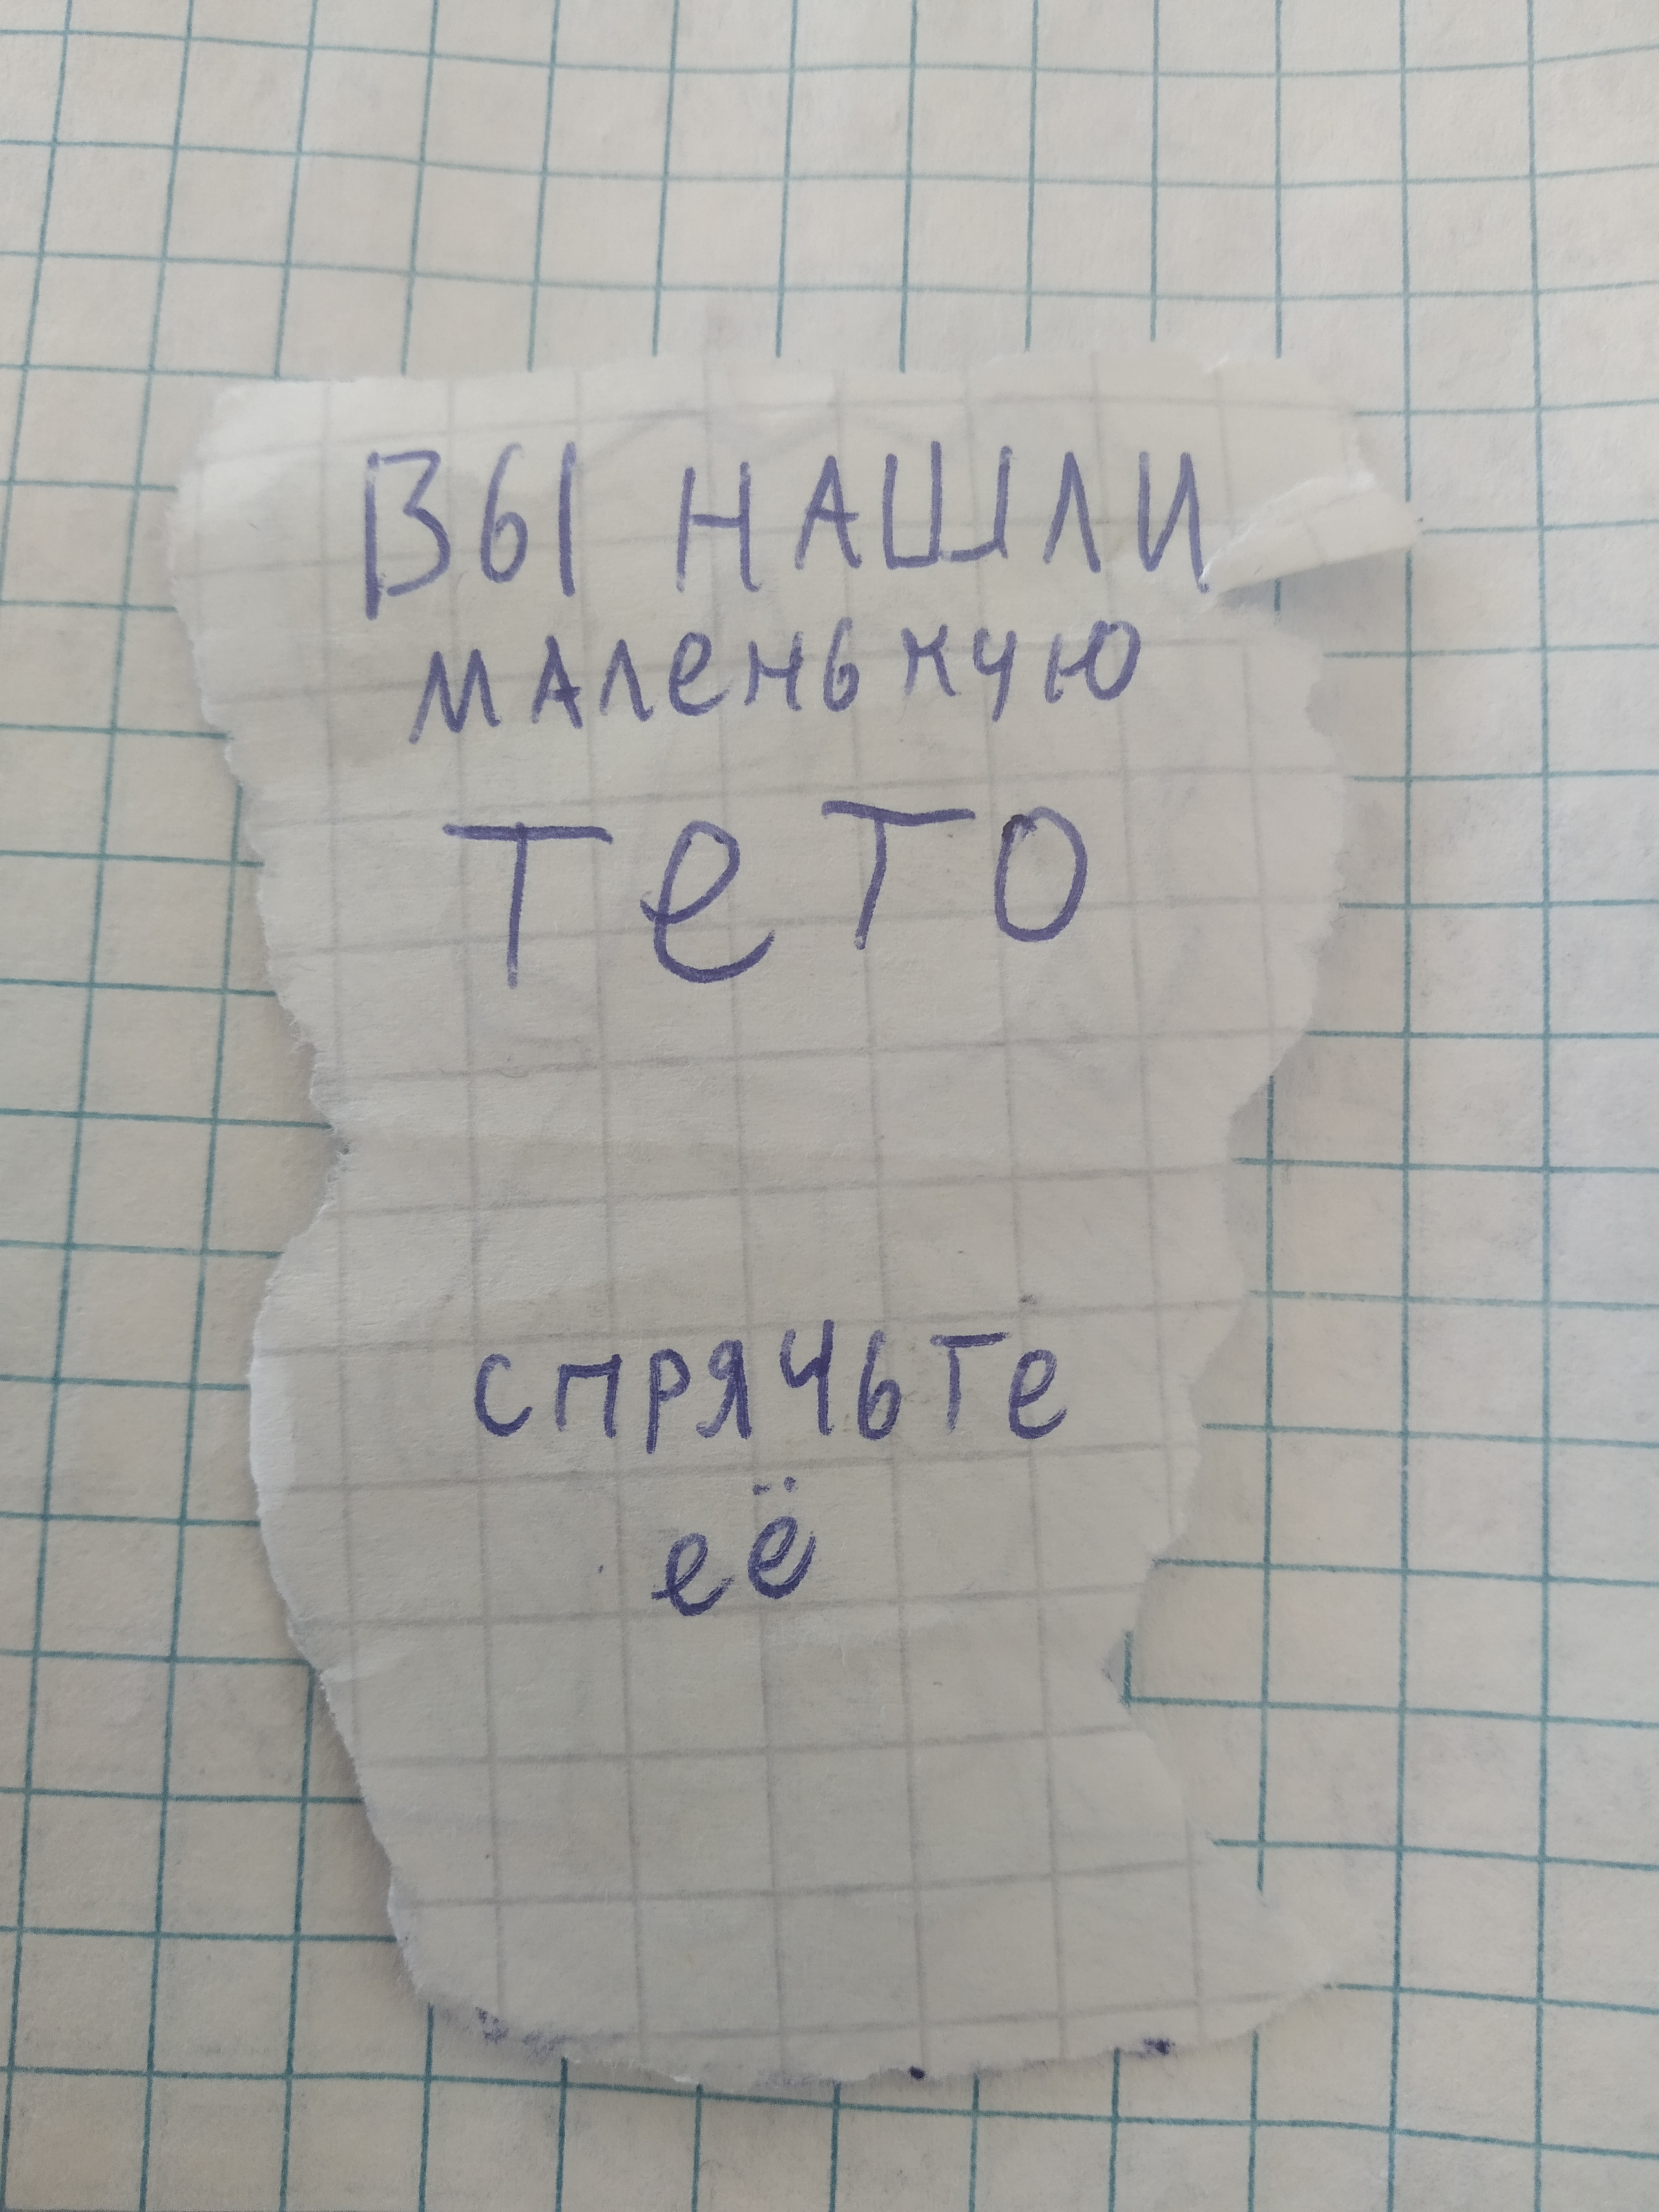 ВЫ НАШЛИ
маленькую
ТеТО
спрячьте
её